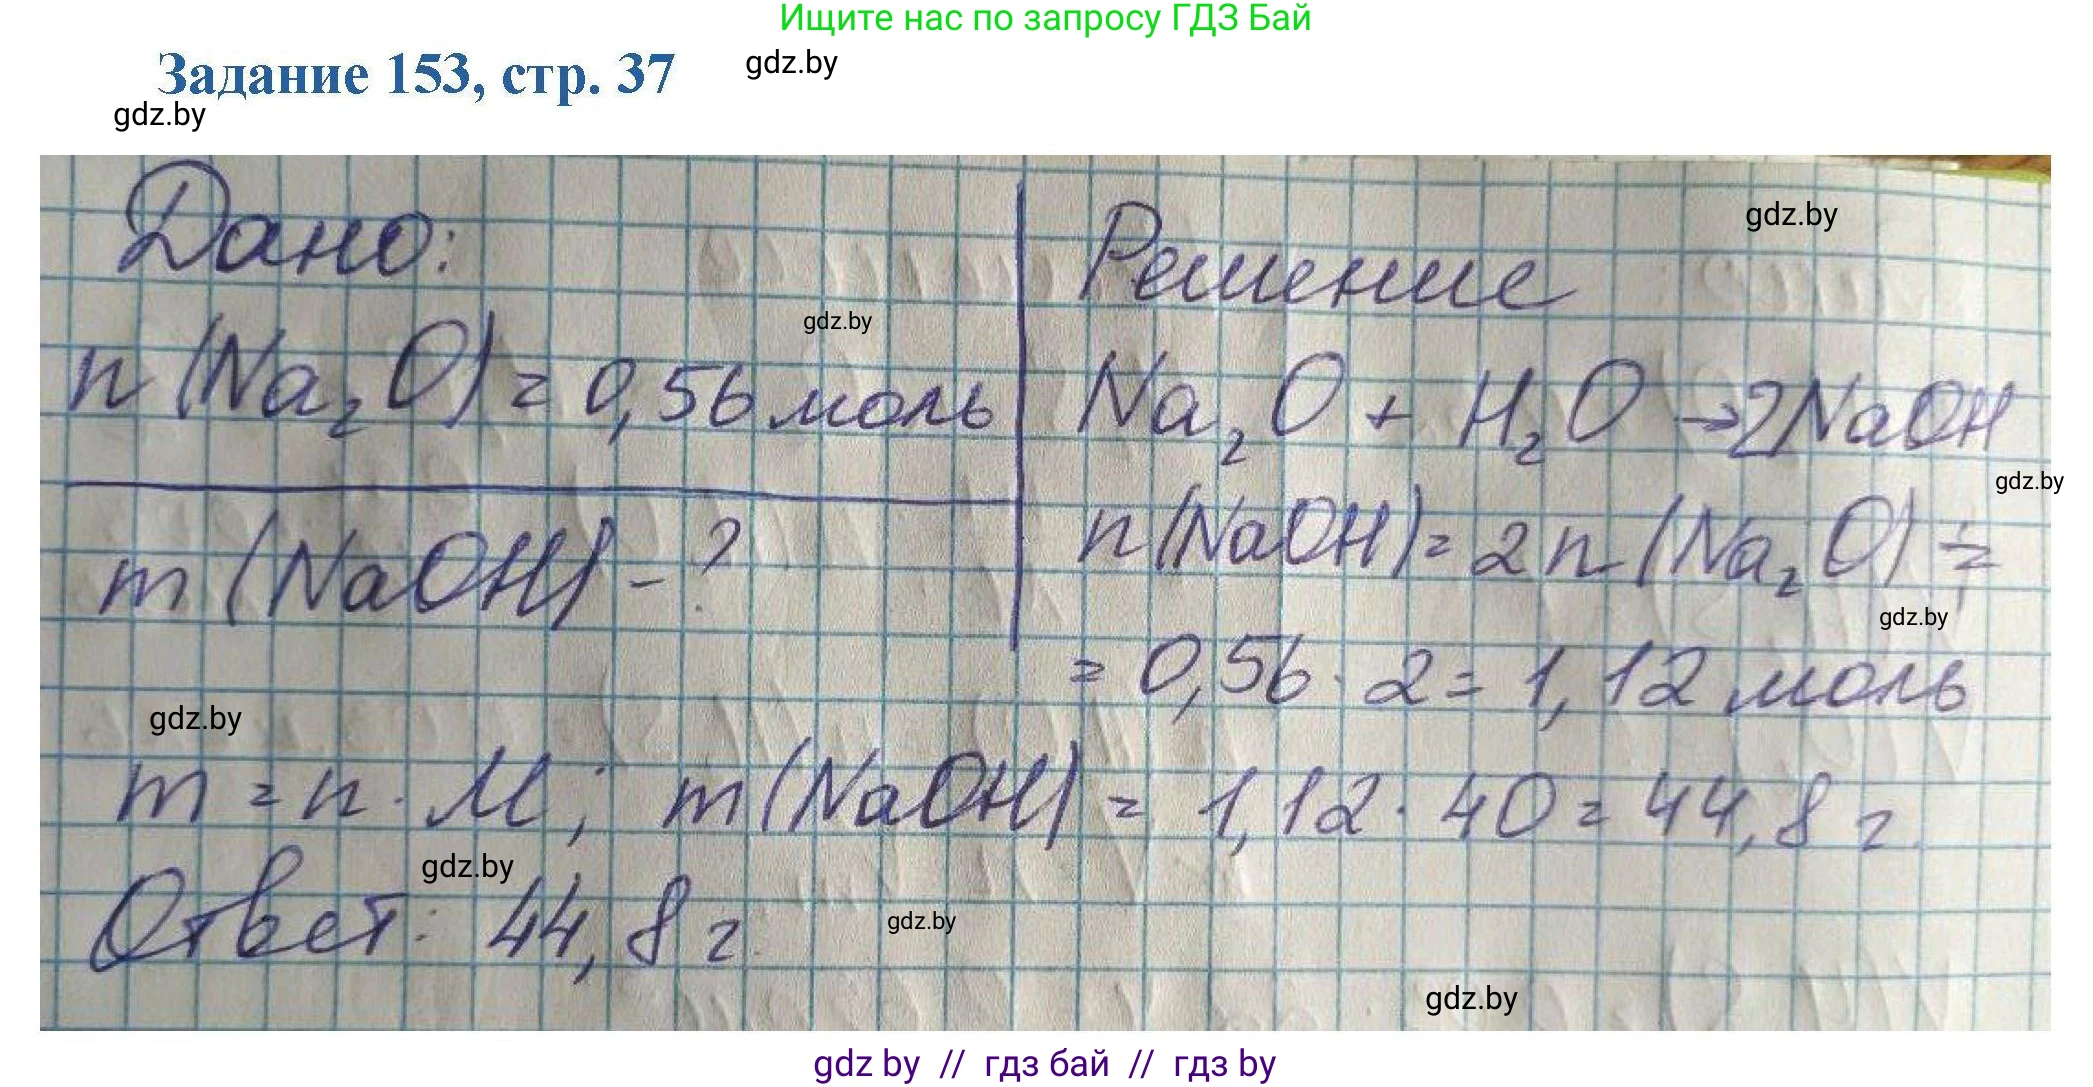 Ищите нас по запросу ГДЗ Бай
Задание 153, стр. 37
gdz.by
gdz.by
Дано:
Решение
gdz.by
gdz.by
n (Na₂O) = 0,56 моль
Na₂O + H₂O → 2NaOH
gdz.by
m (NaOH) - ?
n (NaOH) = 2n (Na₂O) =
gdz.by
= 0,56 · 2 = 1,12 моль
gdz.by
m = n · M; m (NaOH) = 1,12 · 40 = 44,8 г.
gdz.by
Ответ: 44,8 г.
gdz.by
gdz.by
gdz by // гдз бай // гдз by